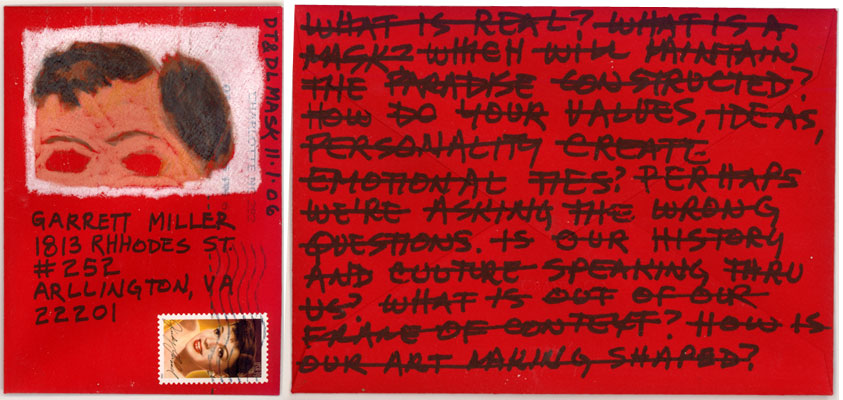 DT&DL MASK 11.1.06
GARRETT MILLER
1813 RHHODES ST.
#252
ARLLINGTON, VA
22201
WHAT IS REAL? WHAT IS A
MASK? WHICH WILL MAINTAIN
THE PARADISE CONSTRUCTED?
HOW DO YOUR VALUES, IDEAS,
PERSONALITY CREATE
EMOTIONAL TIES? PERHAPS
WE'RE ASKING THE WRONG
QUESTIONS. IS OUR HISTORY
AND CULTURE SPEAKING THRU
US? WHAT IS OUT OF OUR
FRAME OF CONTEXT? HOW IS
OUR ART MAKING SHAPED?